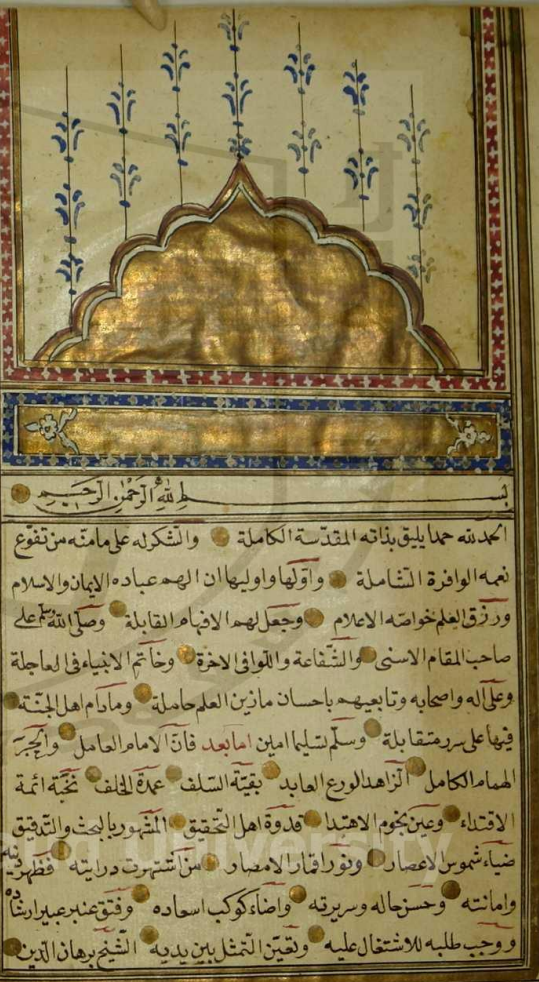 بسم الله الرحمن الرحيم
الحمد لله حمدا يليق بذاته المقدسة الكاملة والشكر له على ما منه من تنوع
نعمه الوافرة الشاملة واولها واوليها ان الهم عباده الايمان والاسلام
ورزق العلم خواصه الاعلام وجعل لهم الافهام القابلة وصلى الله وسلم على
صاحب المقام الاسنى والشفاعة واللوا فى الاخرة وخاتم الانبياء فى العاجلة
وعلى اله واصحابه وتابعيهم باحسان مازين العلم حامله وما دام اهل الجنة
فيها على سرر متقابلة وسلم تسليما امين اما بعد فان الامام العامل والحبر
الهمام الكامل الزاهد الورع العابد بقية السلف عمدة الخلف نخبة ائمة
الاقتداء وعين نجوم الاهتدا قدوة اهل التحقيق المشهور بالبحث والتدقيق
ضياء شموس الاعصار ونور اقمار الامصار من اشتهرت درايته فظهر
وامانته وحسن حاله وسريرته واضاء كوكب اسعاده وفتق عنبر عبير ارشاده
ووجب طلبه للاشتغال عليه وتعين التمثل بين يديه الشيخ برهان الدين
University